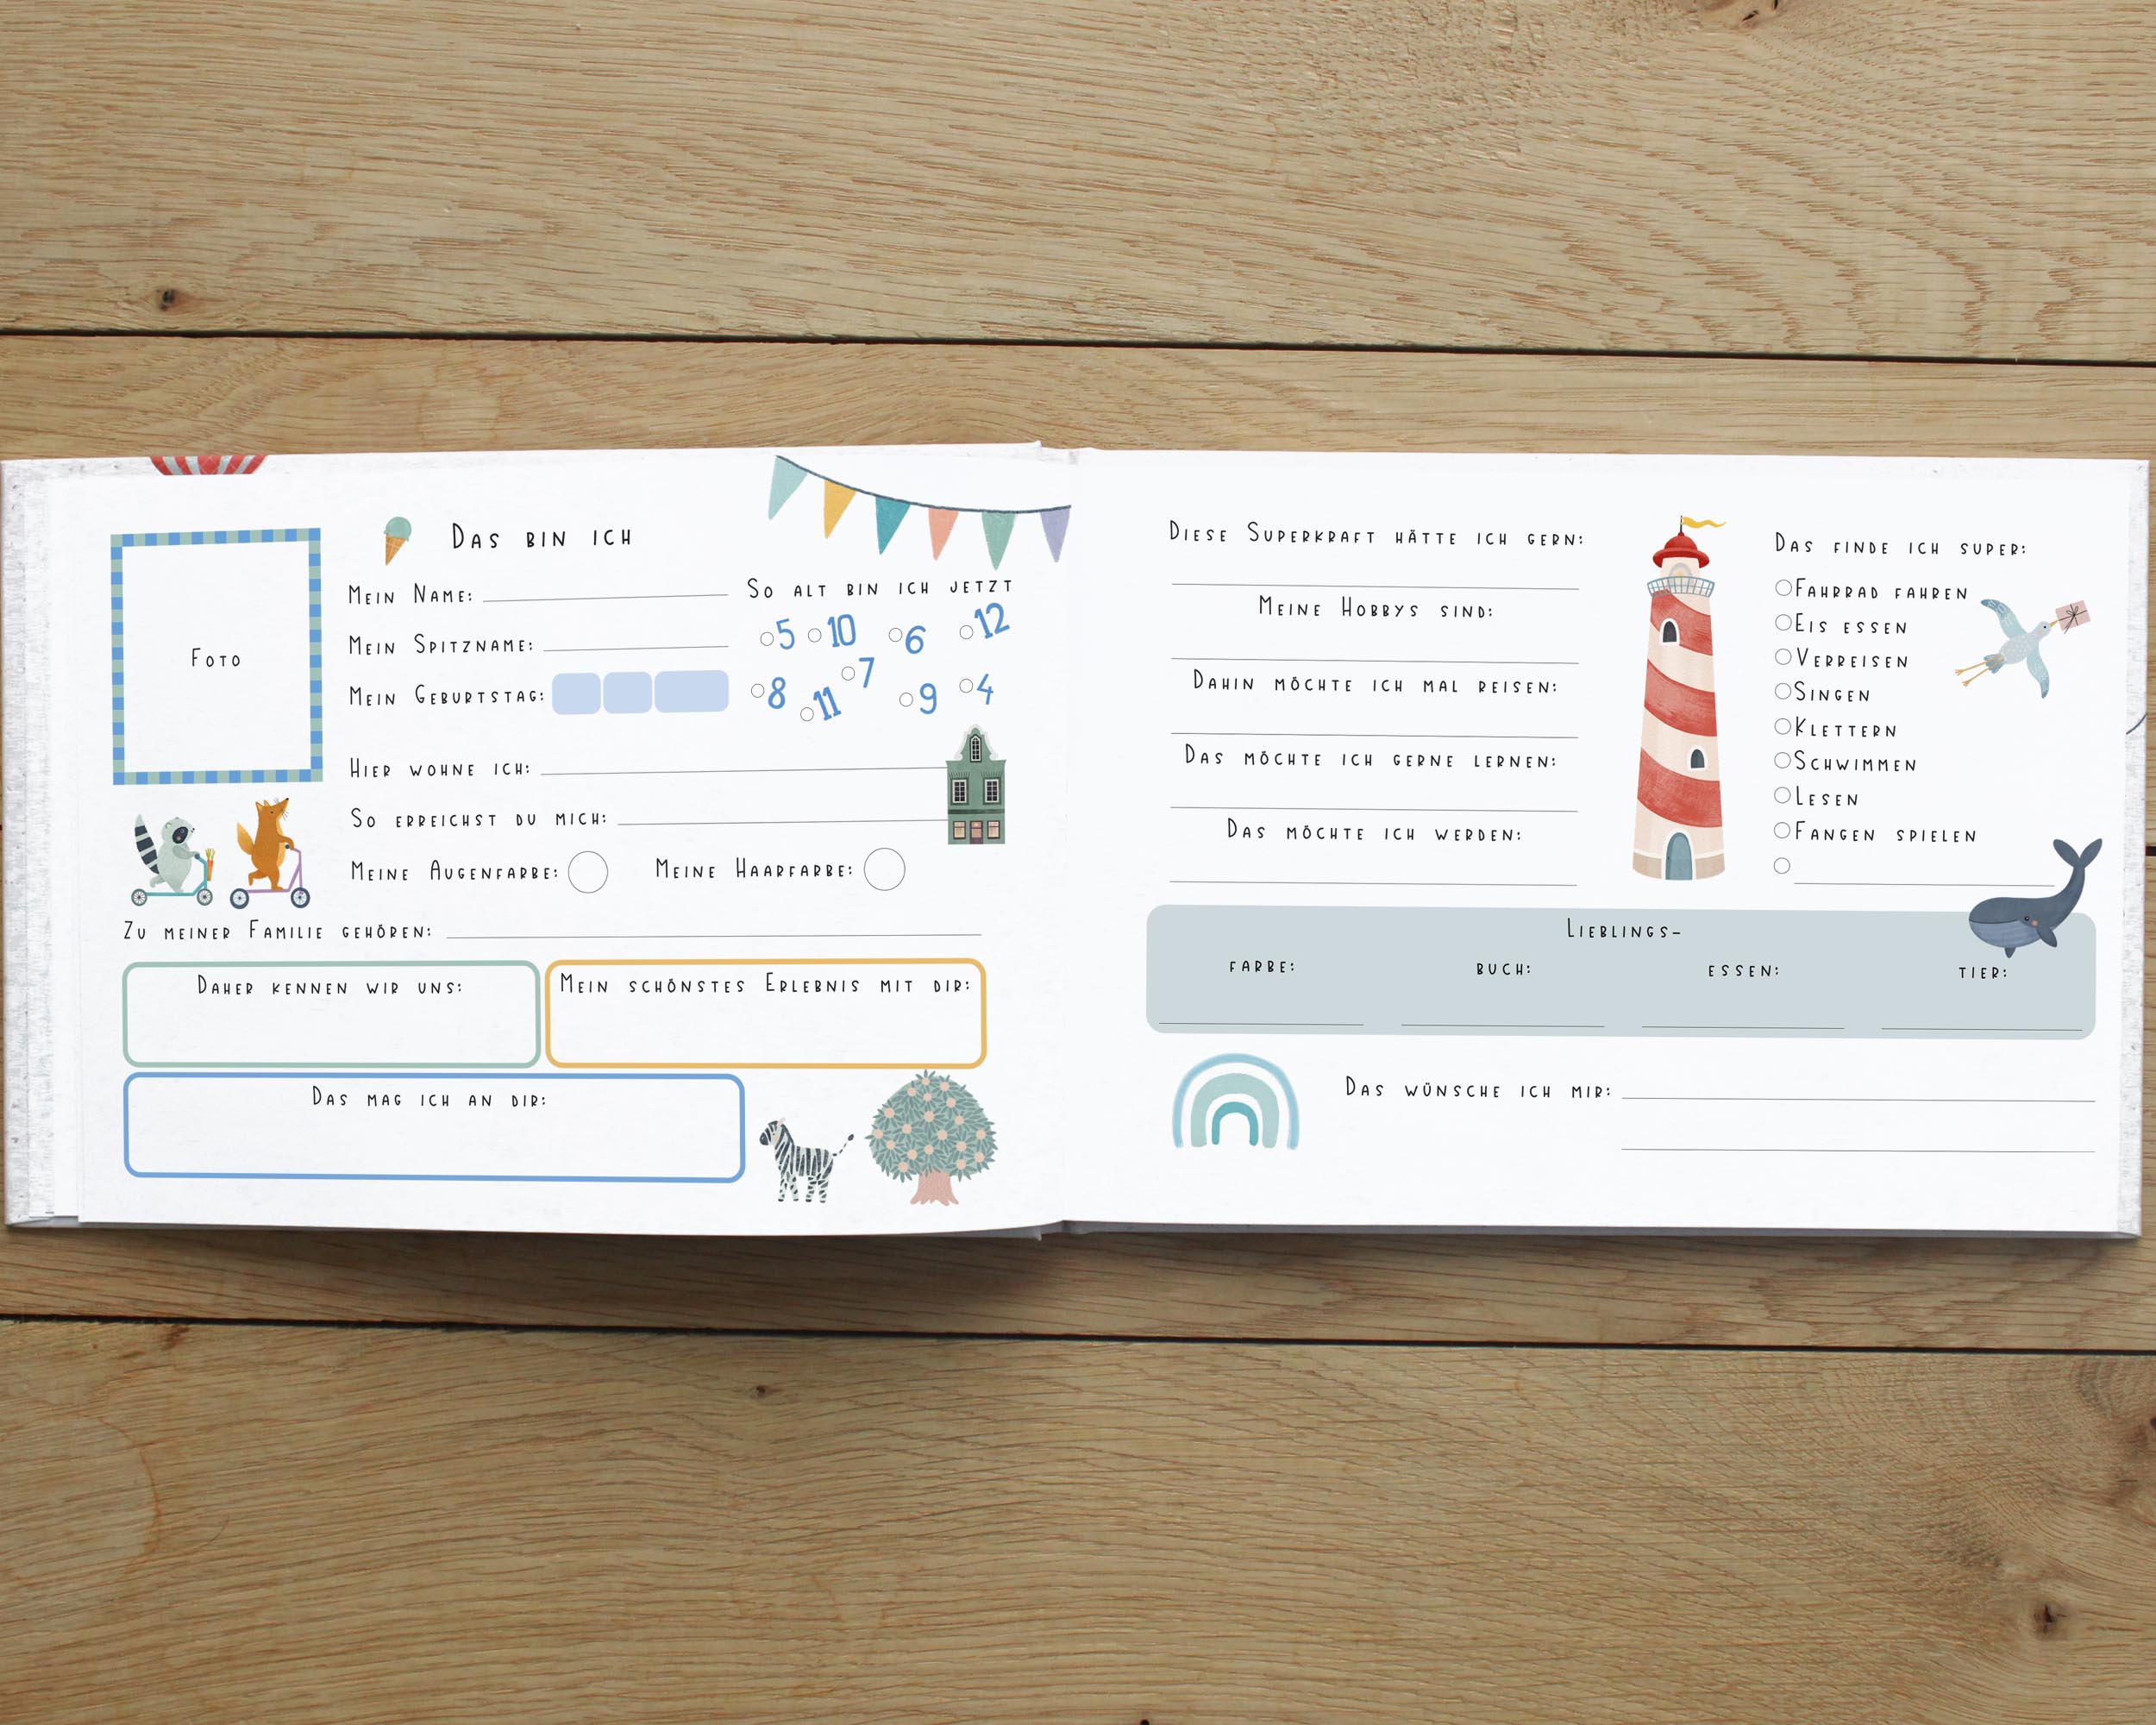 Foto
Das bin ich
Mein Name:
Mein Spitzname:
Mein Geburtstag:
So alt bin ich jetzt
5 10 6 12
8 11 7 9 4
Hier wohne ich:
So erreichst du mich:
Meine Augenfarbe: Meine Haarfarbe:
Zu meiner Familie gehören:
Daher kennen wir uns:
Mein schönstes Erlebnis mit dir:
Das mag ich an dir:
Diese Superkraft hätte ich gern:
Meine Hobbys sind:
Dahin möchte ich mal reisen:
Das möchte ich gerne lernen:
Das möchte ich werden:
Das finde ich super:
Fahrrad fahren
Eis essen
Verreisen
Singen
Klettern
Schwimmen
Lesen
Fangen spielen
Lieblings-
farbe: buch: essen: tier:
Das wünsche ich mir: